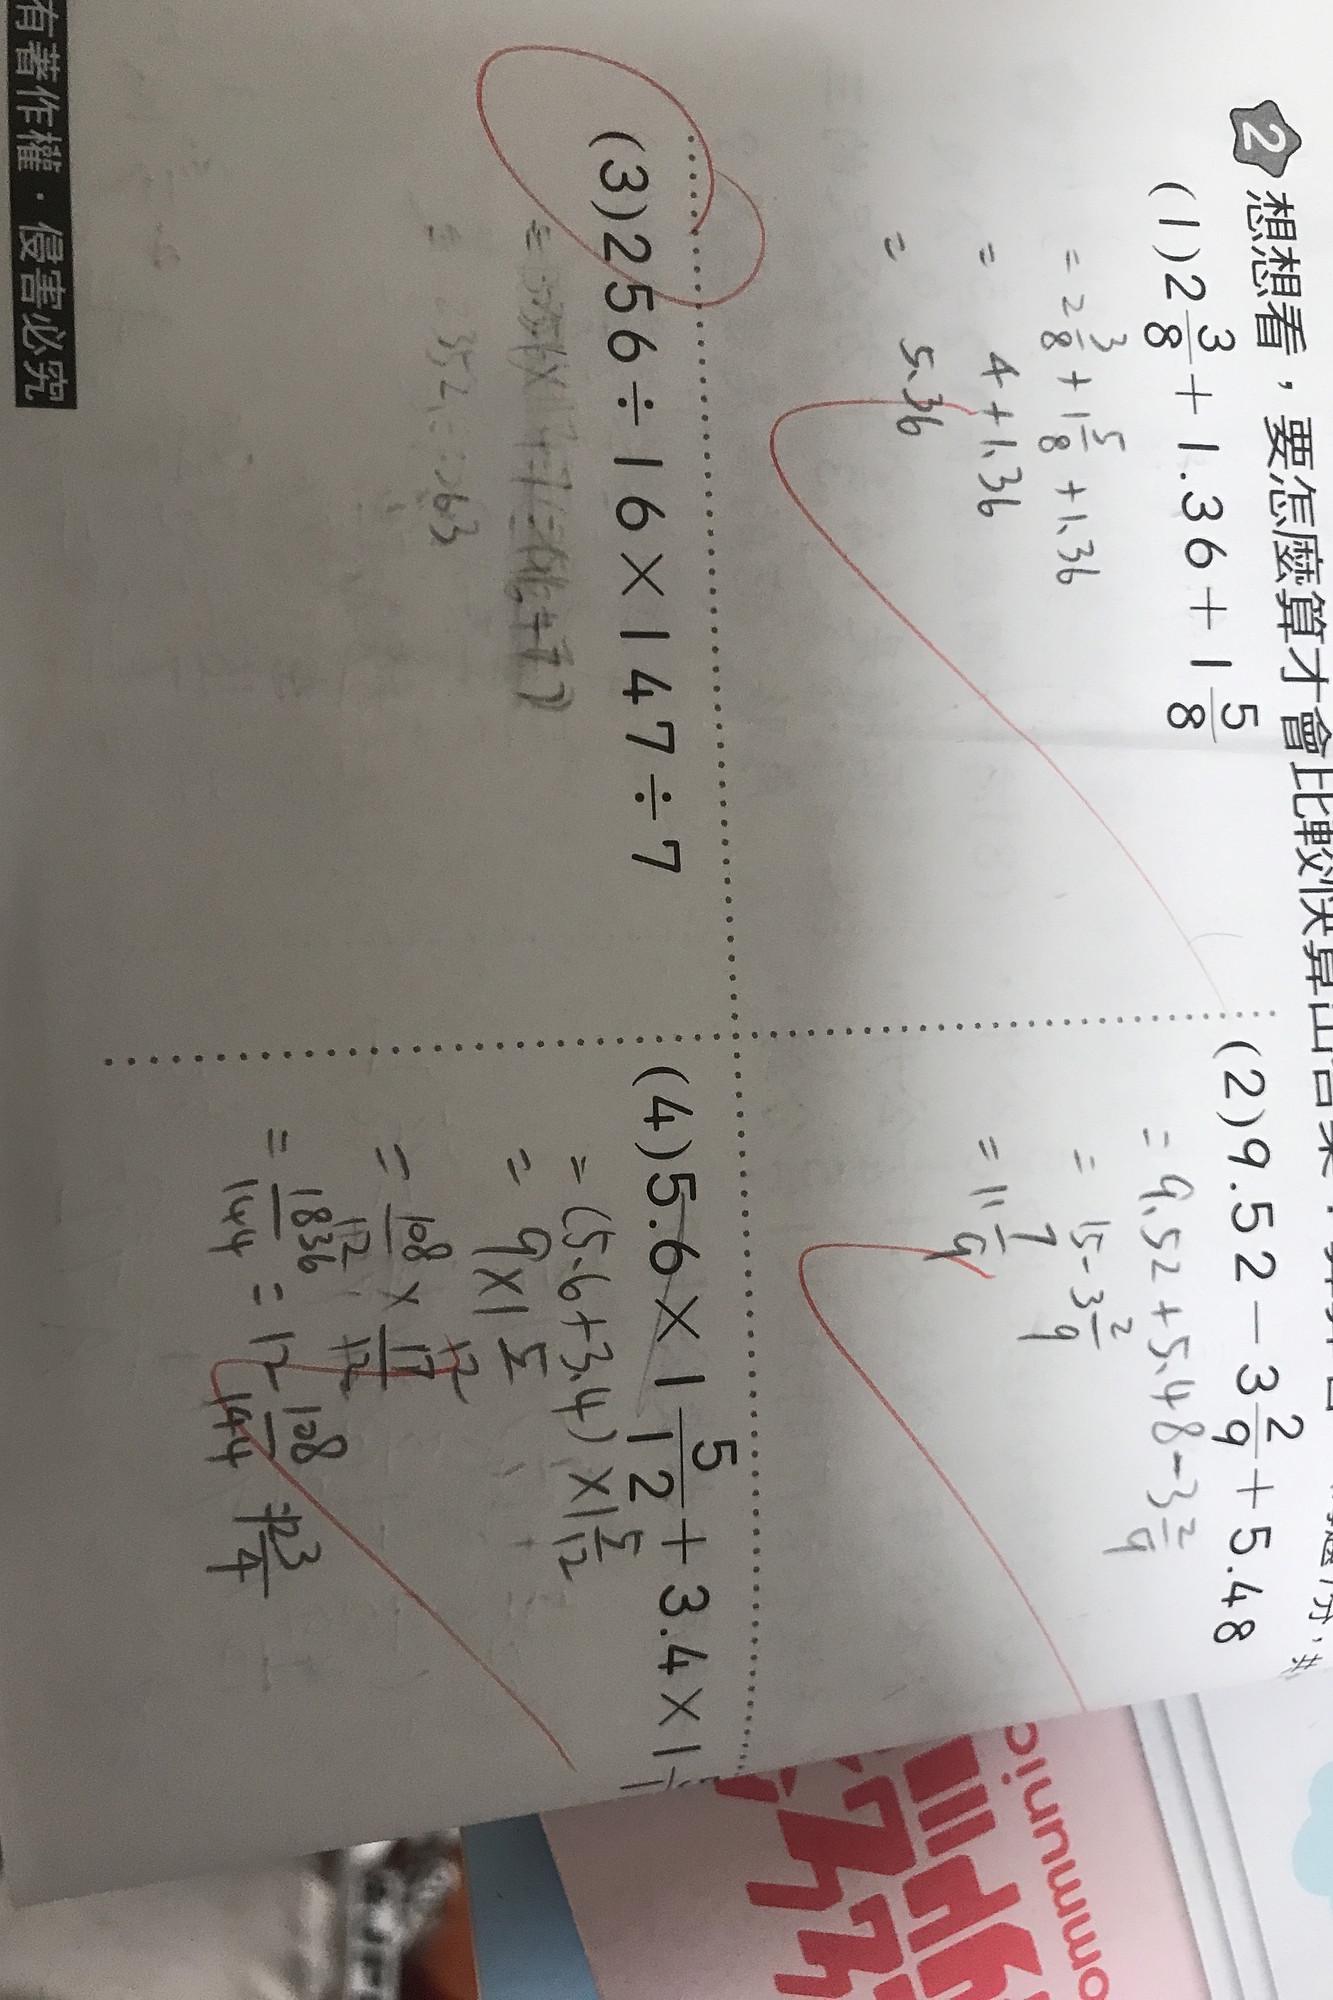 2 想想看，要怎麼算才會比較快算出答案
(1) 2 3/8 + 1.36 + 1 5/8
= 2 3/8 + 1 5/8 + 1.36
= 4 + 1.36
= 5.36
(2) 9.52 - 3 2/9 + 5.48
= 9.52 + 5.48 - 3 2/9
= 15 - 3 2/9
= 11 7/9
(3) 256 ÷ 16 × 147 ÷ 7
(4) 5.6 × 1 5/12 + 3.4 × 1
= (5.6 + 3.4) × 1 5/12
= 9 × 1 5/12
= 108/12 × 17/12
= 1836/144 = 12 108/144 12 3/4
有著作權・侵害必究
ommunic